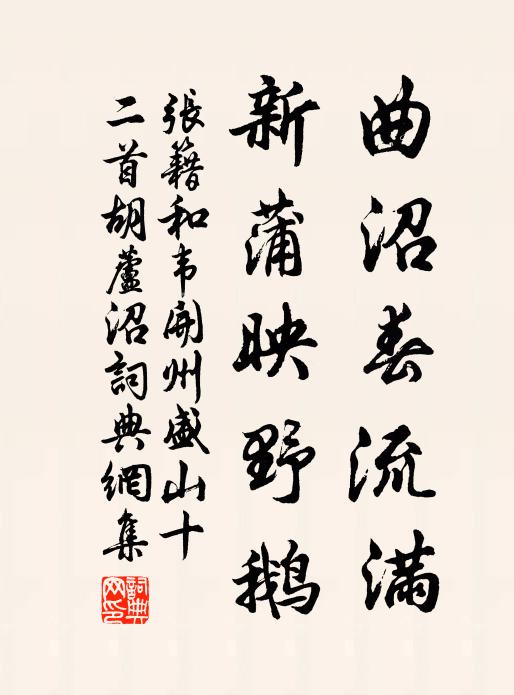 曲沼春流滿
新蒲映野鵝
張籍和韦開州盛山十
二首胡蘆沼詞典網集
詞典网印